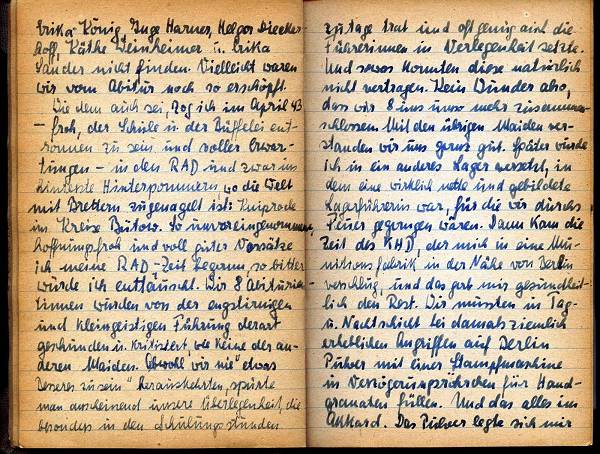 Erika König, Inge Harmes, Helga Diecker-
hoff, Käthe Weinheimer u. Erika
Sander nicht finden. Vielleicht waren
wir vom Abitur noch so erschöpft.
Wie dem auch sei, zog ich im April 43
– froh, der Schule u. der Büffelei ent-
ronnen zu sein und voller Erwar-
tungen – in den RAD und zwar ins
hinterste Hinterpommern, wo die Welt
mit Brettern zugenagelt ist:
im Kreise Bütow. So unvoreingenommen,
hoffnungsfroh und voll guter Vorsätze
ich meine RAD-Zeit begann, so bitter
würde ich enttäuscht. Wir 8 Abiturien-
tinnen wurden von der engstirnigen
und kleingeistigen Führung derart
geschunden u. kritisiert, wie keine der an-
deren Maiden. Obwohl wir nie "etwas
Besseres zu sein" herauskehrten, spürte
man anscheinend unsere Überlegenheit, die
besonders in den Schulungsstunden
zutage trat und oft genug auch die
Führerinnen in Verlegenheit setzte.
Und sowas konnten diese natürlich
nicht vertragen. Kein Wunder also,
dass wir 8 uns umso mehr zusammen-
schlossen. Mit den übrigen Maiden ver-
standen wir uns ganz gut. Später wurde
ich in ein anderes Lager versetzt, in
dem eine wirklich nette und gebildete
Lagerführerin war, für die wir durchs
Feuer gegangen wären. Dann kam die
Zeit des KHD, der mich in eine Mu-
nitionsfabrik in der Nähe von Berlin
verschlug, und das gab mir gesundheit-
lich den Rest. Wir mussten in Tag-
u. Nachtschicht bei damals ziemlich
erheblichen Angriffen auf Berlin
Pulver mit einer Stampfmaschine
in Verzögerungsröhrchen für Hand-
granaten füllen. Und das alles im
Akkord. Das Pulver legte sich mir